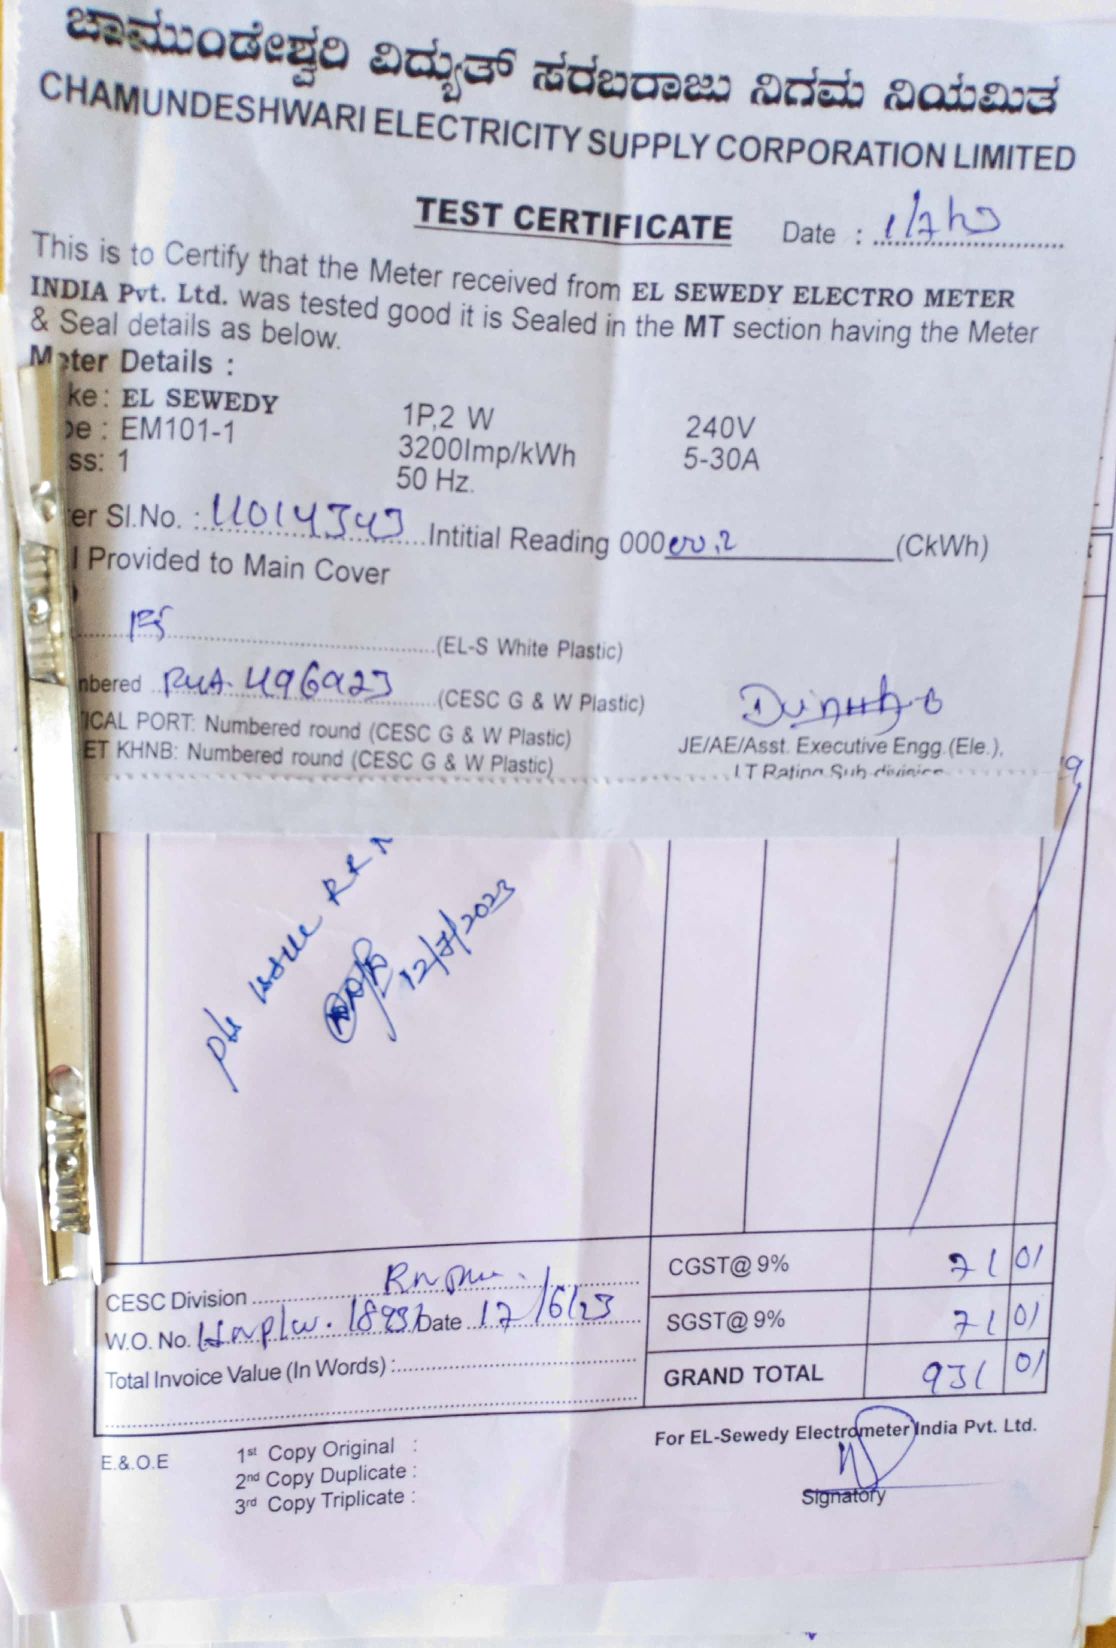 ಚಾಮುಂಡೇಶ್ವರಿ ವಿದ್ಯುತ್ ಸರಬರಾಜು ನಿಗಮ ನಿಯಮಿತ
CHAMUNDESHWARI ELECTRICITY SUPPLY CORPORATION LIMITED
TEST CERTIFICATE Date :
This is to Certify that the Meter received from EL SEWEDY ELECTRO METER
INDIA Pvt. Ltd. was tested good it is Sealed in the MT section having the Meter
& Seal details as below.
Meter Details :
ke: EL SEWEDY 1P,2 W 240V
pe : EM101-1 3200Imp/kWh 5-30A
ss: 1 50 Hz.
er Sl.No. : 11014343 Intitial Reading 000 00.2 (CkWh)
l Provided to Main Cover
(EL-S White Plastic)
nbered 496923 (CESC G & W Plastic)
ICAL PORT: Numbered round (CESC G & W Plastic)
ET KHNB: Numbered round (CESC G & W Plastic)
JE/AE/Asst. Executive Engg.(Ele.),
LT Rating Sub-division
issue RR
12/7/2023
CESC Division
W.O. No. Date 17/6/23
Total Invoice Value (In Words) :
CGST@ 9% 71 01
SGST@ 9% 71 01
GRAND TOTAL 931 01
For EL-Sewedy Electrometer India Pvt. Ltd.
Signatory
E.&.O.E
1st Copy Original :
2nd Copy Duplicate :
3rd Copy Triplicate :